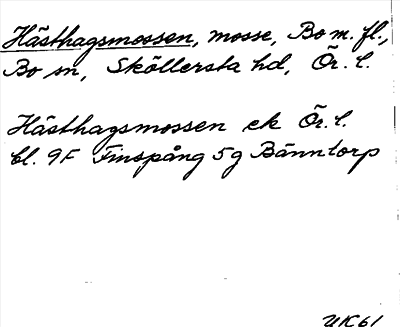 Hästhagsmossen, mosse, Bo m. fl.,
Bo sn, Sköllersta hd, Ör. l.
Hästhagsmossen ek Ör. l.
bl. 9F Finspång 5g Bänntorp
UK61